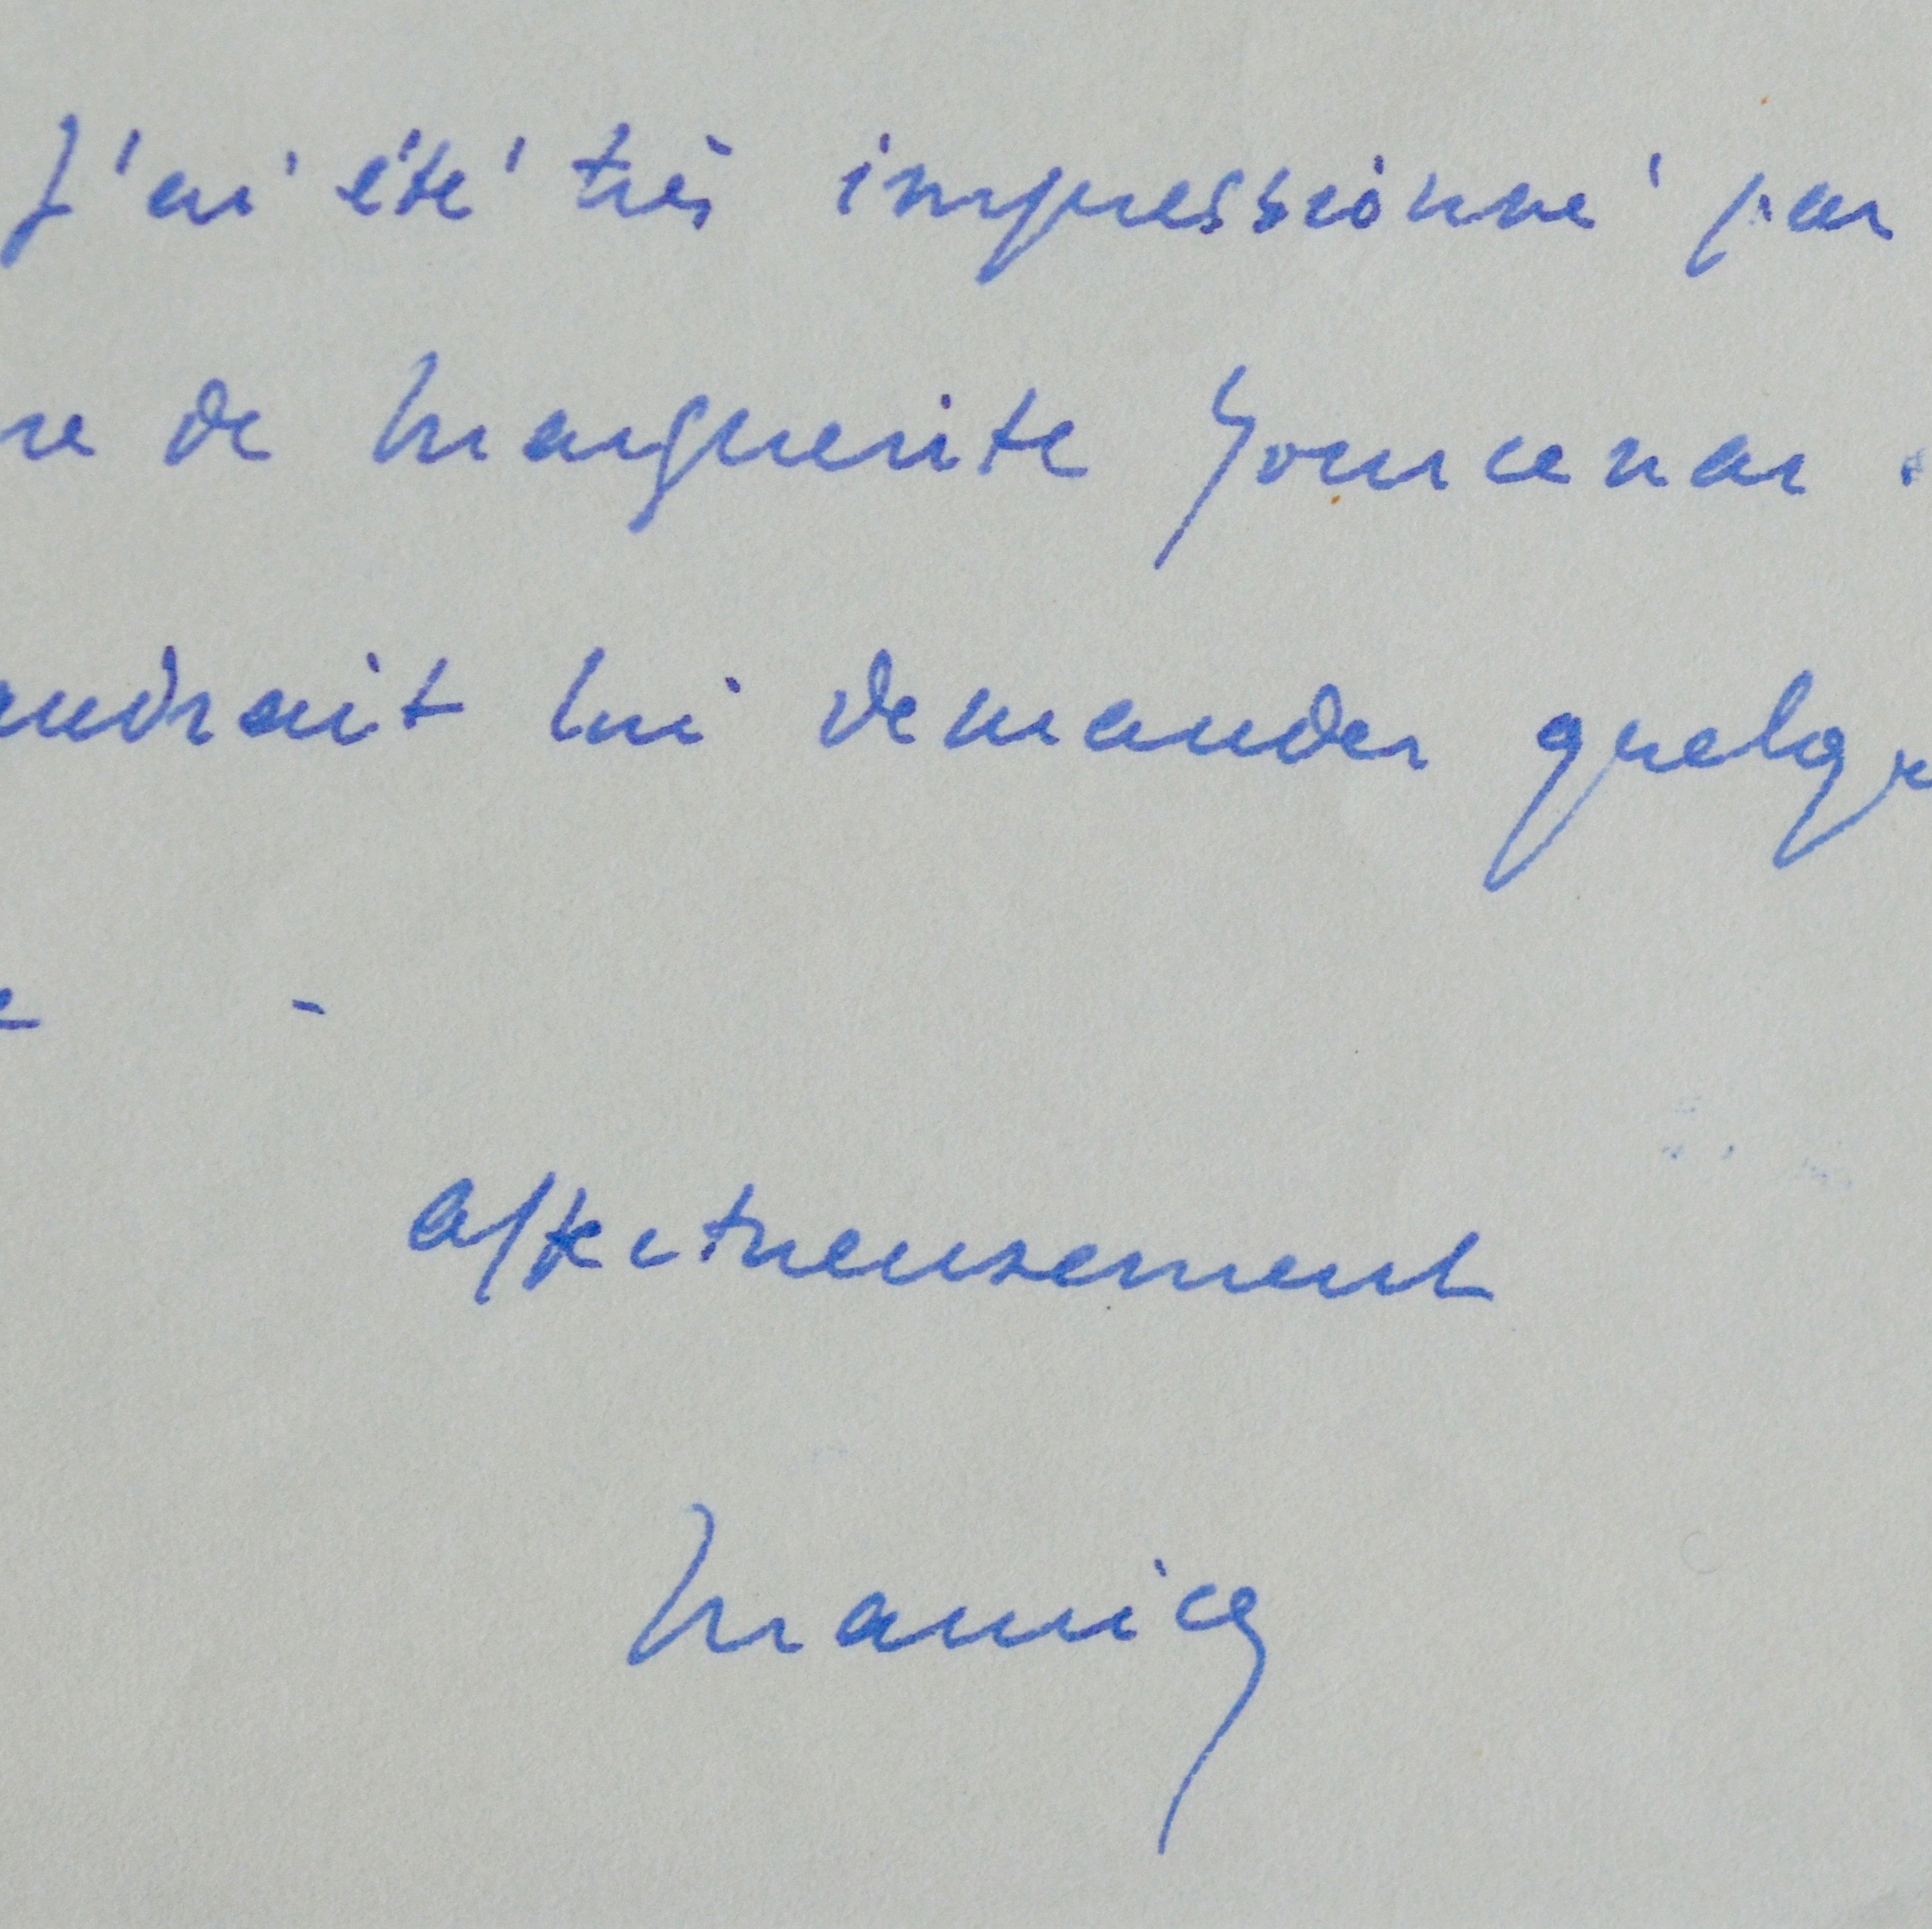 J'ai été très impressionné par
re de Marguerite Yourcenar.
audrait lui demander quelqu
e -
affectueusement
Maurice